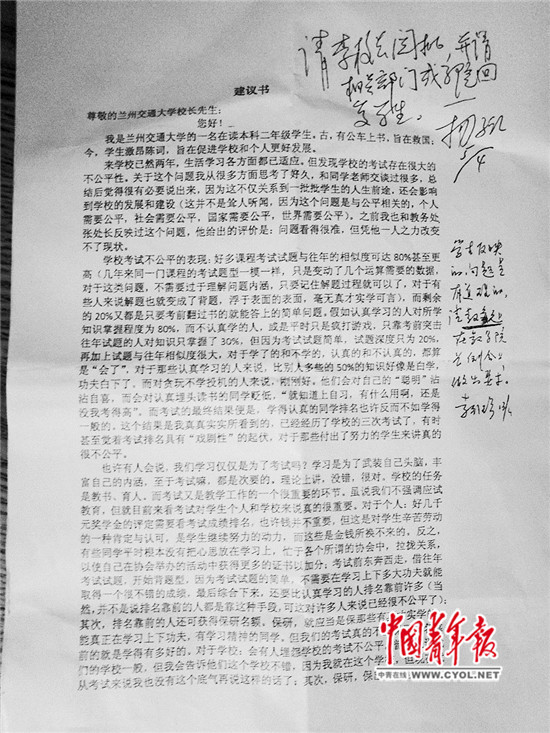 请李校长阅批，并请
相关部门或部处回
复学生。
5/4
学生反映
的问题是
有道理的，
请教务处
在教学院
长任会上
做出要求。
建议书
尊敬的兰州交通大学校长先生：
您好！
我是兰州交通大学的一名在读本科二年级学生。古，有公车上书，旨在救国；
今，学生激昂陈词，旨在促进学校和个人更好发展。
来学校已然两年，生活学习各方面都已适应。但发现学校的考试存在很大的
不公平性。关于这个问题我从很多方面思考了好久，和同学老师交谈过很多，总
结后觉得很有必要说出来，因为这不仅关系到一批批学生的人生前途，还会影响
到学校的发展和建设（这并不是耸人听闻，因为这个问题是与公平相关的，个人
需要公平，社会需要公平，国家需要公平，世界需要公平）。之前我也和教务处
张处长反映过这个问题，他给出的评价是：问题看得很准，但凭他一人之力改变
不了现状。
学校考试不公平的表现：好多课程考试试题与往年的相似度可达 80%甚至更
高（几年来同一门课程的考试题型一模一样，只是变动了几个运算需要的数据，
对于这类问题，不需要过于理解问题内涵，只要记住解题过程就可以了，对于有
些人来说解题也就变成了背题，浮于表面的表面，毫无真才实学可言），而剩余
的 20%又都是只要考前翻过书的就能答上的简单问题。假如认真学习的人对所学
知识掌握程度为 80%，而不认真学的人，或是平时只是疯打游戏，只靠考前突击
往年试题的人对知识只掌握了 30%，但因为考试试题简单，试题深度只为 20%，
再加上试题与往年相似度很大，对于学了的和不学的，认真的和不认真的，都算
是“会了”，对于那些认真学习的人来说，比别人多些的 50%的知识好像是白学，
功夫白下了。而对贪玩不学投机的人来说，刚刚好。他们会对自己的“聪明”沾
沾自喜，而会对认真埋头读书的同学贬低，“就知道上自习，有什么用啊，还是
没我考得高”。而考试的最终结果便是，学得认真的同学排名也许反而不如学得
一般的。这个结果是我真真实实所看到的，已经经历了学校的三次考试了，有时
甚至觉着考试排名具有“戏剧性”的起伏，对于那些付出了努力的学生来讲真的
很不公平。
也许有人会说，我们学习仅仅是为了考试吗？学习是为了武装自己头脑，丰
富自己的内涵，至于考试嘛，都是次要的。理论上讲，没错，很对。学校的任务
是教书、育人。而考试又是教学工作的一个很重要的环节。虽说我们不强调应试
教育，但就目前来看考试对学生个人和学校来说真的很重要。对于个人：好几千
元奖学金的评定需要看考试成绩排名，也许钱并不重要，但这是对学生辛苦劳动
的一种肯定与认可，是学生继续努力的动力，而这些是金钱所换不来的。反之，
有些同学平时根本没有把心思放在学习上，忙于各个所谓的协会中，拉拢关系，
以使自己在协会举办的活动中获得更多的证书以加分；考试前东奔西走，借往年
考试试题，开始背题型，因为考试试题的简单，不需要在学习上下多大功夫就能
取得一个很不错的成绩，最后综合下来，还要比认真学习的人排名靠前许多（当
然，并不是说排名靠前的人都是靠这种手段，可这对许多人来说已经很不公平了）；
其次，排名靠前的人还可获得保研名额。保研，就应当是保那些有
能真正在学习上下功夫，有学习精神的同学。但我们的考试真的不
前的就是学得有多好的。对于学校：会有人埋怨学校的考试不公平，
们的学校一般，但我会告诉他们这个学校不错，因为我就在这个学
从考试来说我也没有这个底气再说这样的话了；其次，保研，保
中国青年报
中青在线 WWW.CYOL.NET